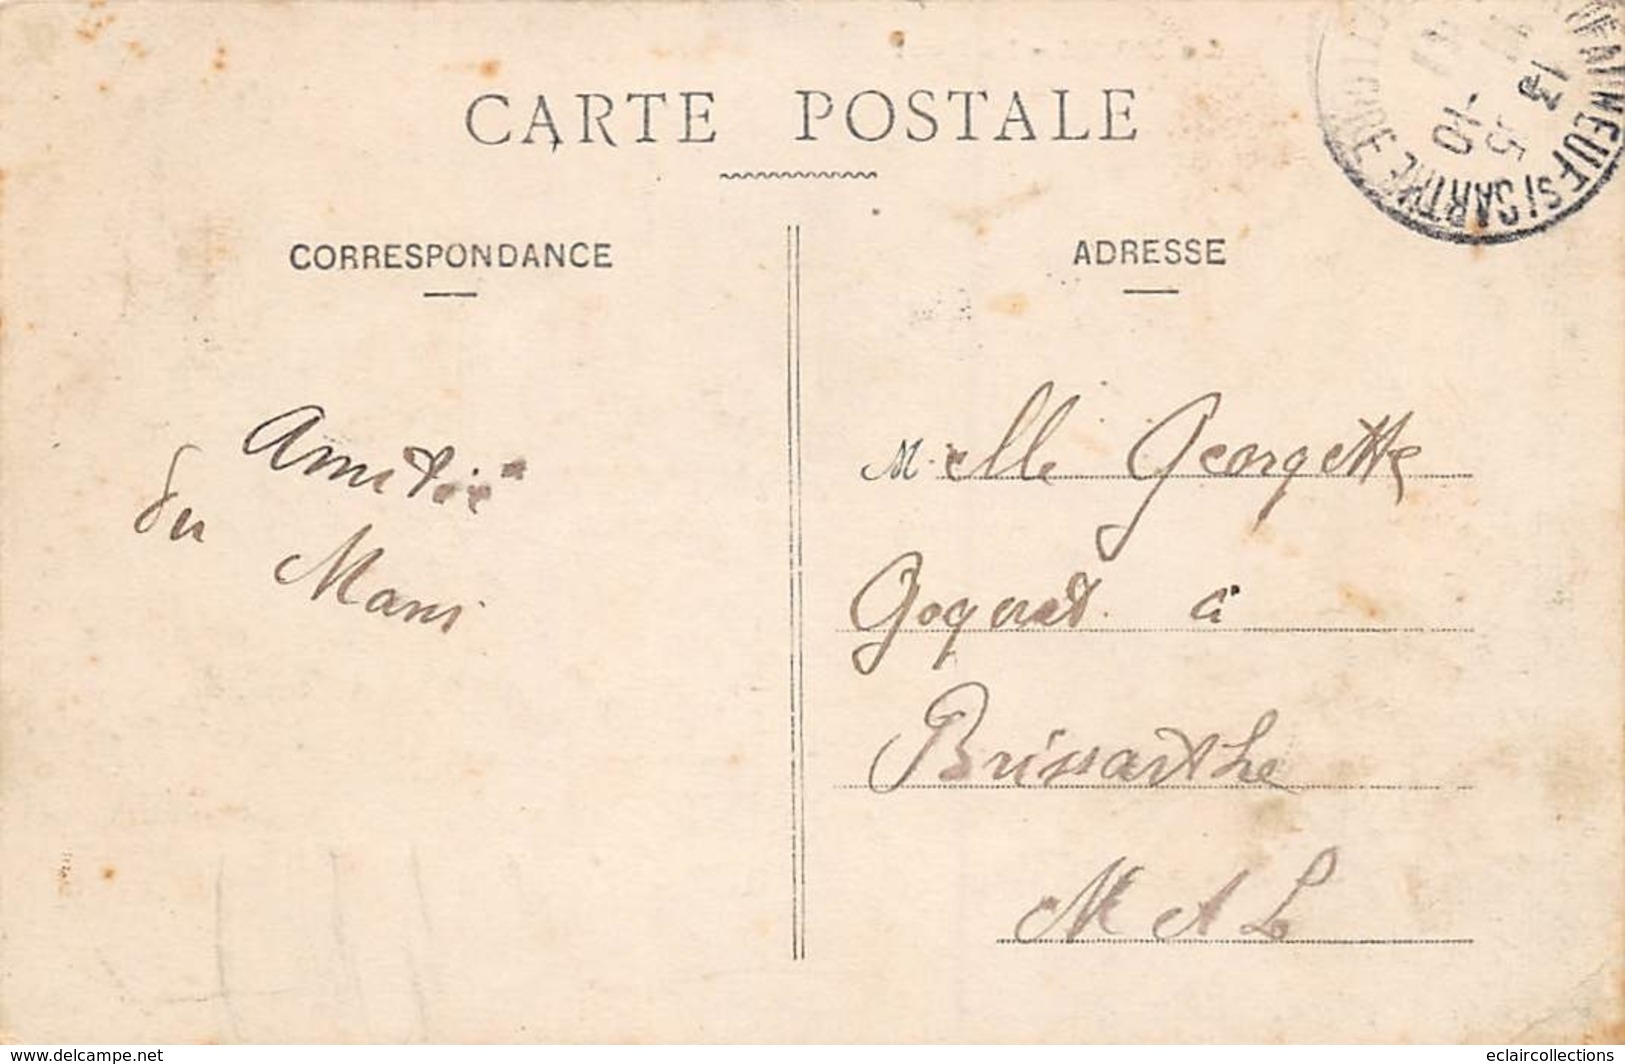 CARTE POSTALE
CORRESPONDANCE
ADRESSE
Amitié
du
Mans
M.elle Georgette
Goguet à
Brissarthe
M A L
NEUF S/ SARTHE
13
5
-10
www.delcampe.net
eclaircollections